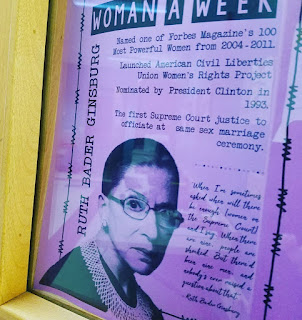 WOMAN A WEEK
Named one of Forbes Magazine's 100
Most Powerful Women from 2004-2011.
Launched American Civil Liberties
Union Women's Rights Project
Nominated by President Clinton in
1993.
The first Supreme Court justice to
officiate at same sex marriage
ceremony.
RUTH BADER GINSBURG
When I'm sometimes
asked when will there
be enough (women on
the Supreme Court)
and I say, When there
are nine, people are
shocked. But there'd
been nine men, and
nobody's ever raised a
question about that.
-Ruth Bader Ginsburg